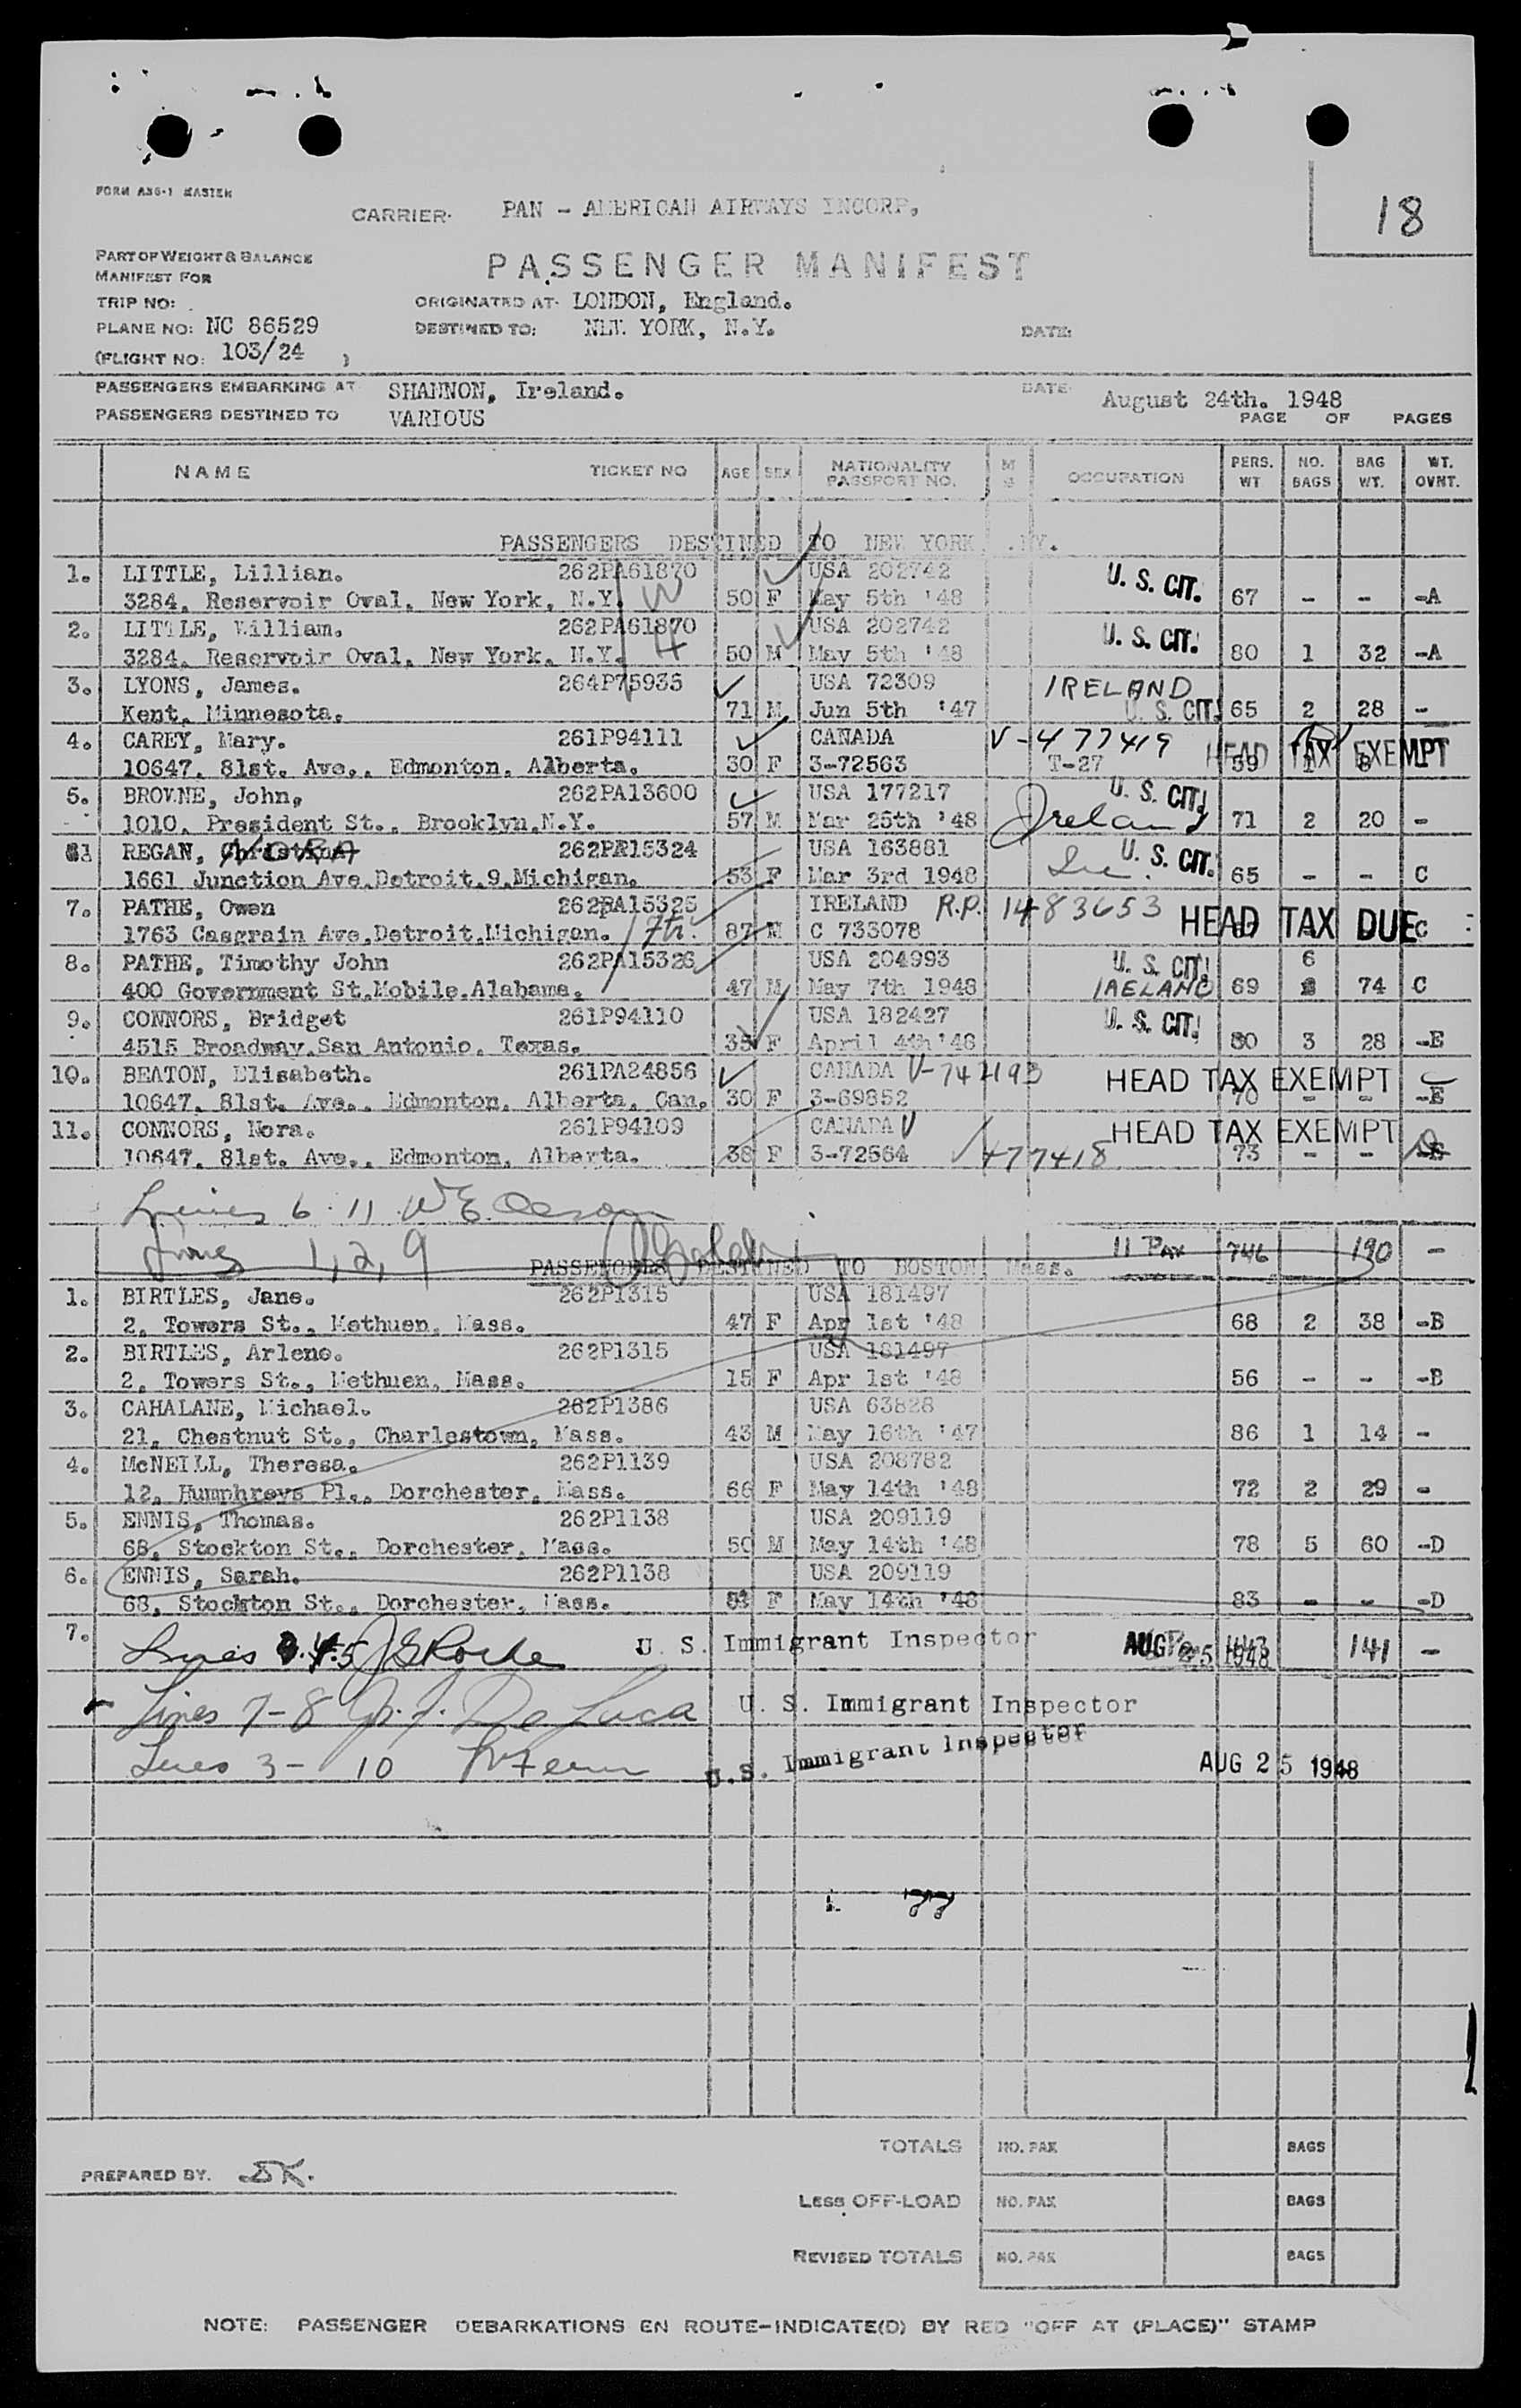 FORM A36-1 MASTER
18
CARRIER. PAN - AMERICAN AIRWAYS INCORP,
PART OF WEIGHT & BALANCE
MANIFEST FOR
PASSENGER MANIFEST
TRIP NO: ORIGINATED AT. LONDON, England.
PLANE NO: NC 86529 DESTINED TO: NEW YORK, N.Y. DATE:
(FLIGHT NO: 103/24 )
PASSENGERS EMBARKING AT SHANNON, Ireland. DATE. August 24th. 1948
PASSENGERS DESTINED TO VARIOUS PAGE OF PAGES
NAME TICKET NO AGE SEX NATIONALITY PASSPORT NO. M S OCCUPATION PERS. WT NO. BAGS BAG WT. WT. OVNT.
PASSENGERS DESTINED TO NEW YORK .NY.
1. LITTLE, Lillian. 262PA61870 USA 202742 U. S. CIT.
3284, Reservoir Oval, New York, N.Y. 50 F May 5th '48 67 - - -A
2. LITTLE, William. 262PA61870 USA 202742 U. S. CIT.
3284, Reservoir Oval, New York, N.Y. 50 M May 5th '48 80 1 32 -A
3. LYONS, James. 264P75935 USA 72309 IRELAND
Kent, Minnesota. 71 M Jun 5th '47 U. S. CIT. 65 2 28 -
4. CAREY, Mary. 261P94111 CANADA V-477419 HEAD TAX EXEMPT
10647, 81st. Ave., Edmonton, Alberta. 30 F 3-72563 T-27 59 1 8
5. BROWNE, John, 262PA13600 USA 177217 U. S. CIT.
1010, President St., Brooklyn, N.Y. 57 M Mar 25th '48 Ireland 71 2 20 -
6. REGAN, NORA 262PA15324 USA 163881 U. S. CIT.
1661 Junction Ave, Detroit, 9, Michigan. 53 F Mar 3rd 1948 Ire. 65 - - C
7. PATHE, Owen 262PA15325 IRELAND R.P. 1483653 HEAD TAX DUE
1763 Casgrain Ave, Detroit, Michigan. 87 M C 733078 C
8. PATHE, Timothy John 262PA15326 USA 204993 U. S. CIT. 6
400 Government St, Mobile, Alabama. 47 M May 7th 1948 IRELAND 69 74 C
9. CONNORS, Bridget 261P94110 USA 182427 U. S. CIT.
4515 Broadway, San Antonio, Texas. 35 F April 4th '48 80 3 28 -E
10. BEATON, Elisabeth. 261PA24856 CANADA HEAD TAX EXEMPT
10647, 81st. Ave., Edmonton, Alberta, Can, 30 F 3-69852 70 - - -E
11. CONNORS, Nora. 261P94109 CANADA V HEAD TAX EXEMPT
10647, 81st. Ave., Edmonton, Alberta. 38 F 3-72564 477418 73 - -
Lines 6-11
Lines 1, 2, 9 11 PAX 746 190 -
PASSENGERS DESTINED TO BOSTON Mass.
1. BIRTLES, Jane. 262P1315 USA 181497
2, Towers St., Methuen, Mass. 47 F Apr 1st '48 68 2 38 -B
2. BIRTLES, Arlene. 262P1315 USA 181497
2, Towers St., Methuen, Mass. 15 F Apr 1st '48 56 - - -B
3. CAHALANE, Michael. 262P1386 USA 63828
21, Chestnut St., Charlestown, Mass. 43 M May 16th '47 86 1 14 -
4. McNEILL, Theresa. 262P1139 USA 208782
12, Humphreys Pl., Dorchester, Mass. 66 F May 14th '48 72 2 29 -
5. ENNIS, Thomas. 262P1138 USA 209119
68, Stockton St., Dorchester, Mass. 50 M May 14th '48 78 5 60 -D
6. ENNIS, Sarah. 262P1138 USA 209119
68, Stockton St., Dorchester, Mass. F May 14th '48 83 - - -D
7. Lines 4-5 J G Roche U. S. Immigrant Inspector AUG 25 1948 141 -
Lines 7-8 De Luca U. S. Immigrant Inspector
Lines 3- 10 U.S. Immigrant Inspector AUG 25 1948
TOTALS NO. PAX BAGS
PREPARED BY. DK.
Less OFF-LOAD NO. PAX BAGS
REVISED TOTALS NO. PAX BAGS
NOTE: PASSENGER DEBARKATIONS EN ROUTE-INDICATE(D) BY RED "OFF AT (PLACE)" STAMP